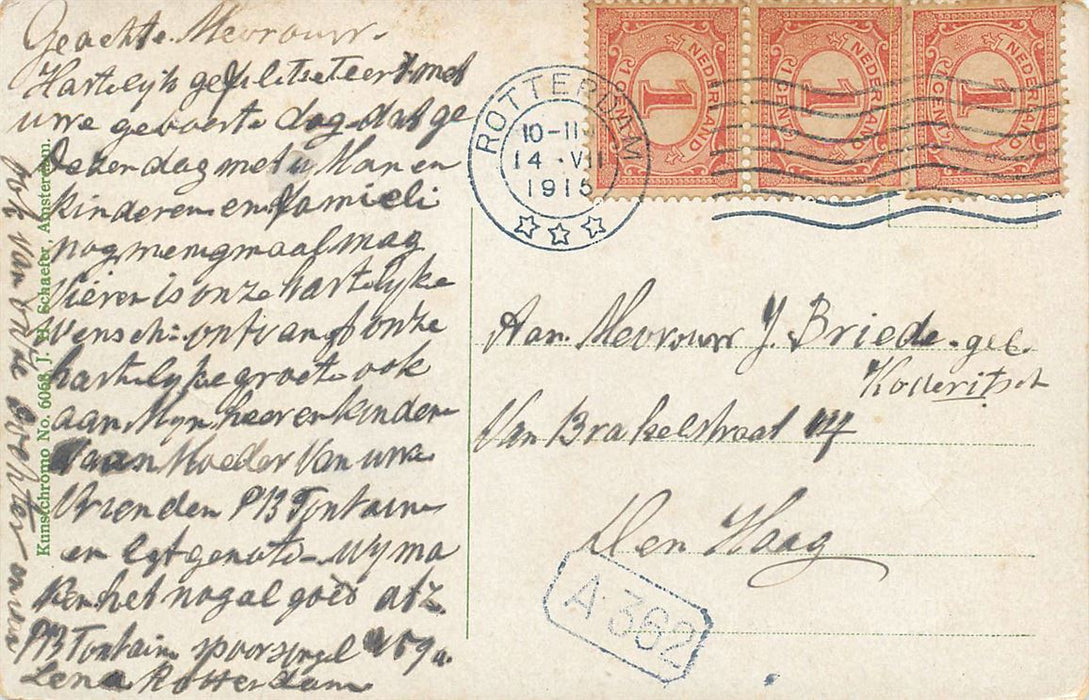 Geachte Mevrouw
Hartelijk gefeliciteerd met
uwe geboorte dag dat ge
dezen dag met u Man en
kinderen en famieli
nog menigmaal mag
Vieren is onze hartelijke
Wensch ontvangt onze
hartelijke groete ook
aan Mijn heer en kinderen
aan Moeder Van uwe
Vrienden PB Fontain
en Egtgenote wij ma
ken het nogal goed atz
PB Fontain spoorsingel 59a
Rotterdam
ook van onze dochter
Kunstchromo No. 6068, J. v. H. Schaefer, Amsterdam.
NEDERLAND
1
1 CENT
NEDERLAND
1
1 CENT
NEDERLAND
1
1 CENT
ROTTERDAM
10-11
14 VII
1915
Aan Mevrouw J. Briede geb.
Kolleritsch
Van Brakelstraat
Den Haag
A 362